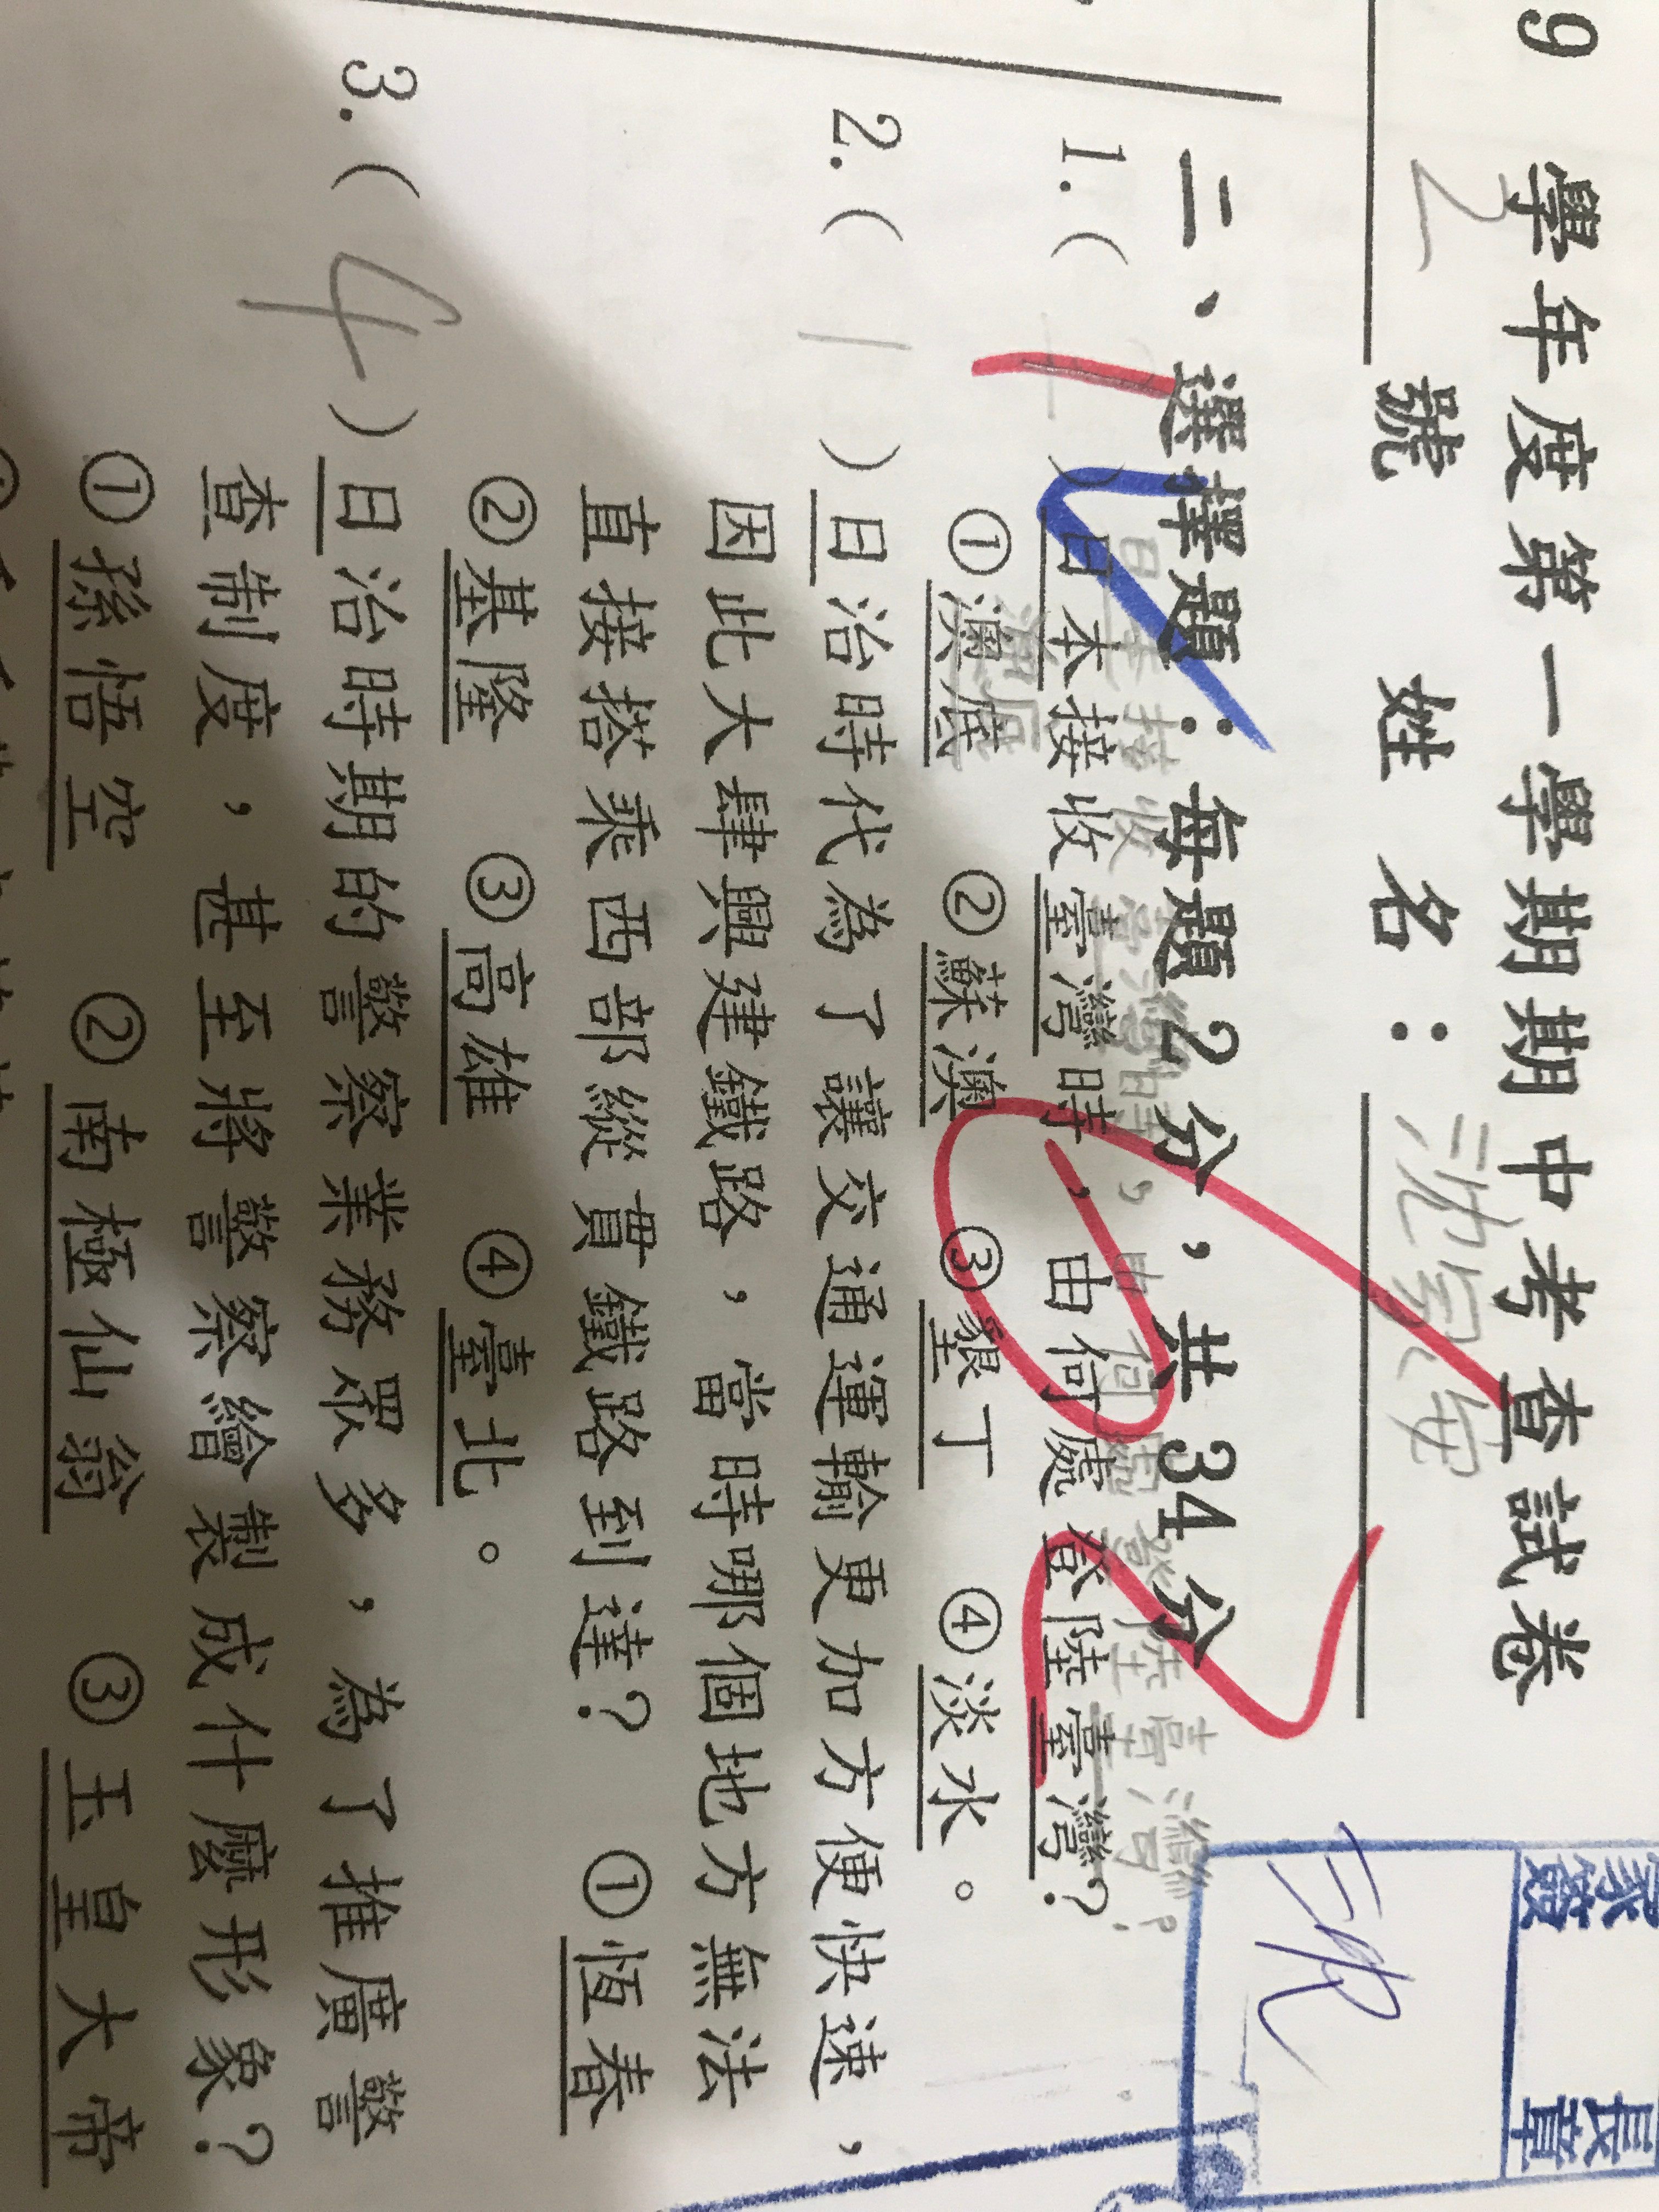 9 學年度第一學期期中考查試卷
2 號 姓名：
家長
簽章
二、選擇題：每題2分，共34分
1.( )日本接收臺灣時，由何處登陸臺灣？
①澳底 ②蘇澳 ③墾丁 ④淡水。
2.( 1 )日治時代為了讓交通運輸更加方便快速，
因此大肆興建鐵路，當時哪個地方無法
直接搭乘西部縱貫鐵路到達？ ①恆春
②基隆 ③高雄 ④臺北。
3.( 4 )日治時期的警察業務眾多，為了推廣警
查制度，甚至將警察繪製成什麼形象？
①孫悟空 ②南極仙翁 ③玉皇大帝